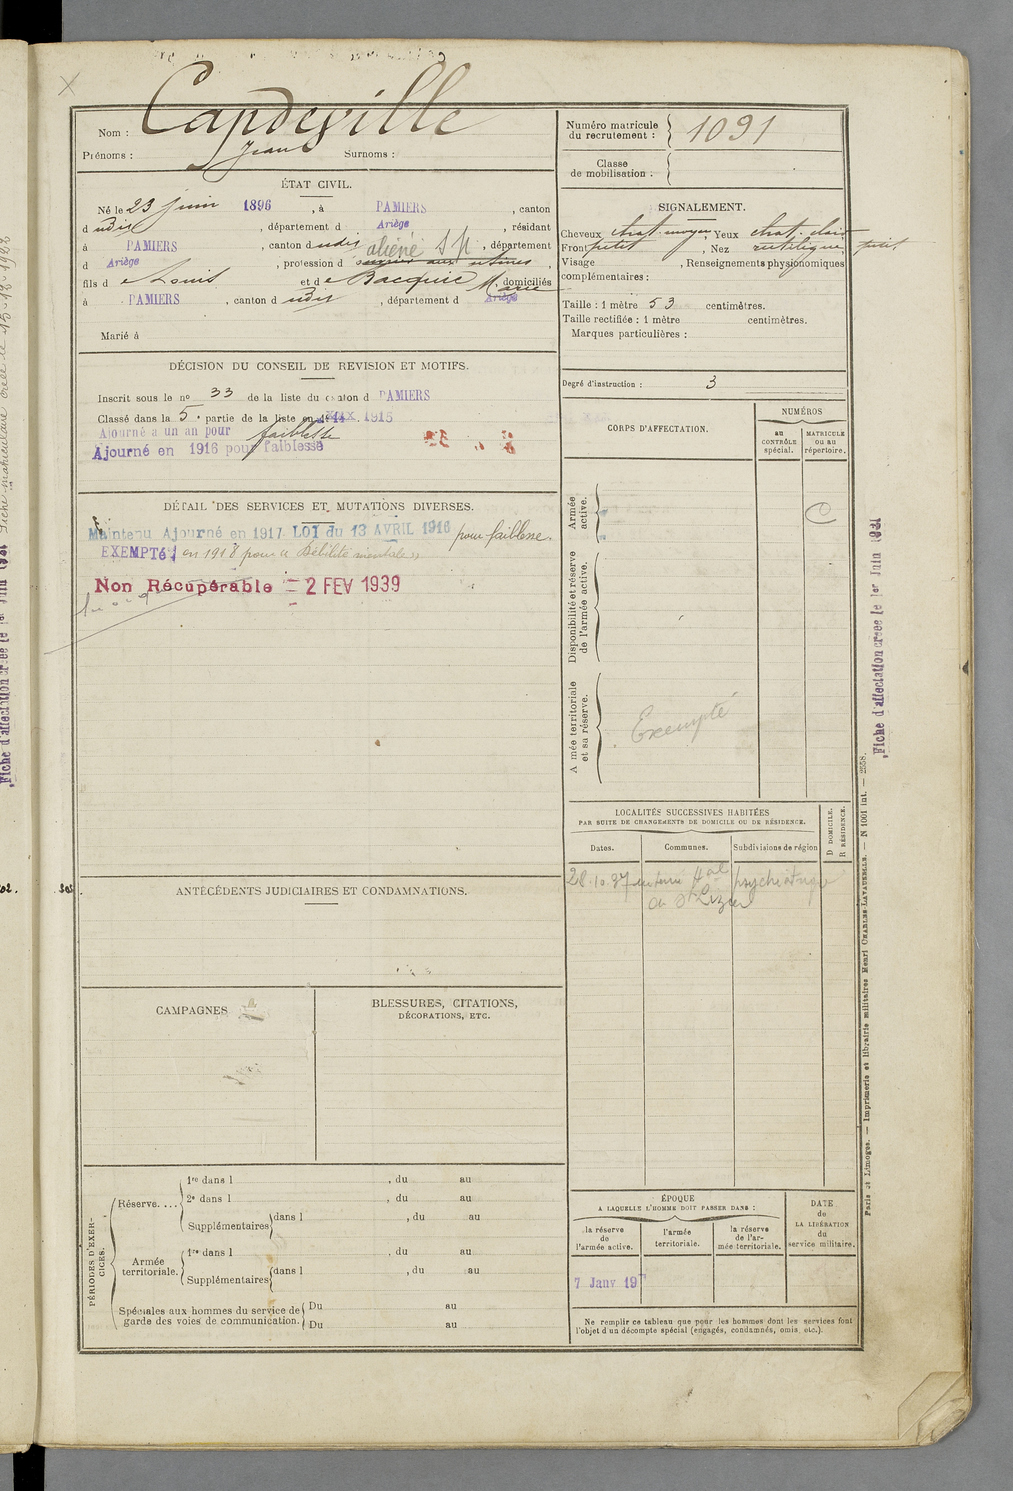 Capdeville
Nom :
Prénoms : Jean Surnoms :
Numéro matricule du recrutement : 1091
Classe de mobilisation :
ÉTAT CIVIL.
Né le 23 juin 1896, à PAMIERS, canton
d udit, département d Ariège, résidant
à PAMIERS, canton d udit, département
aliéné S P
d Ariège, profession d ouvrier aux usines,
fils d e Louis et d e Bacquié Marie, domiciliés
à PAMIERS, canton d udit, département d Ariège
Marié à
SIGNALEMENT.
Cheveux chat. moyen, Yeux chat. clair
Front petit, Nez rectiligne, petit
Visage , Renseignements physionomiques
complémentaires :
Taille : 1 mètre 53 centimètres.
Taille rectifiée : 1 mètre centimètres.
Marques particulières :
Degré d'instruction : 3
DÉCISION DU CONSEIL DE REVISION ET MOTIFS.
Inscrit sous le n° 33 de la liste du canton d PAMIERS
Classé dans la 5e partie de la liste en 1915
Ajourné a un an pour faiblesse
Ajourné en 1916 pour faiblesse
CORPS D'AFFECTATION.
NUMÉROS
au CONTRÔLE spécial.
MATRICULE ou au répertoire.
Armée active.
Disponibilité et réserve de l'armée active.
Armée territoriale et sa réserve.
Exempté
DÉTAIL DES SERVICES ET MUTATIONS DIVERSES.
Maintenu Ajourné en 1917 LOI du 13 AVRIL 1916 pour faiblesse.
EXEMPTÉ en 1918 pour « Débilité mentale »
Non Récupérable = 2 FEV 1939
LOCALITÉS SUCCESSIVES HABITÉES
PAR SUITE DE CHANGEMENTS DE DOMICILE OU DE RÉSIDENCE.
D DOMICILE.
R RÉSIDENCE.
Dates. Communes. Subdivisions de région
28.10.37 interné Hal psychiatrique
de St Lizier
202.
ANTÉCÉDENTS JUDICIAIRES ET CONDAMNATIONS.
CAMPAGNES
BLESSURES, CITATIONS,
DÉCORATIONS, ETC.
PÉRIODES D'EXERCICES.
Réserve....
1re dans l , du au
2e dans l , du au
Supplémentaires dans l , du au
Armée territoriale.
1re dans l , du au
Supplémentaires dans l , du au
Spéciales aux hommes du service de garde des voies de communication.
Du au
Du au
ÉPOQUE
A LAQUELLE L'HOMME DOIT PASSER DANS :
la réserve de l'armée active.
l'armée territoriale.
la réserve de l'armée territoriale.
DATE de LA LIBÉRATION du service militaire.
7 Janv 19
Ne remplir ce tableau que pour les hommes dont les services font
l'objet d'un décompte spécial (engagés, condamnés, omis, etc.).
Fiche d'affectation créée le 1er Juin 1931
Paris et Limoges. — Imprimerie et librairie militaires Henri CHARLES-LAVAUZELLE. — N 1001 int. — 2558.
Fiche d'affectation créée le 1er Juin 1931